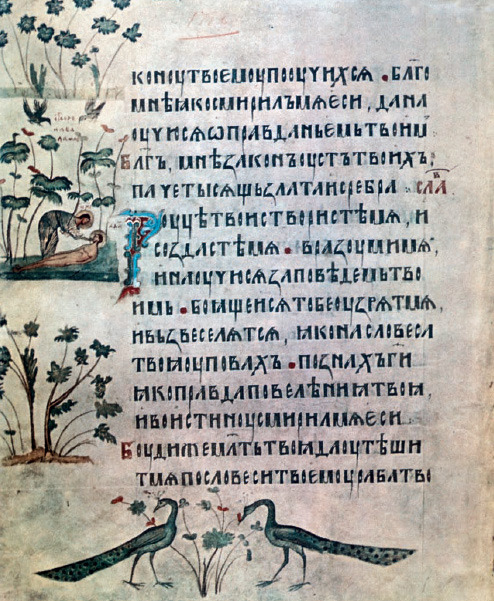 конѹтвоемѹпоѹчихсѧ · бл҃го
мнѣꙗкосмирилъмѧеси, дана
ѹчисѧѡправданьемьтвоим
Бл҃гъ, мнѣзаконъѹстътвоихъ,
пачетысѧщьзлатаисребра · слав
Рѹцѣтвоиствористемѧ, и
создастемѧ · вразѹмимѧ,
инаѹчисѧзаповѣдемьтво
имь · боꙗщеисѧтобеѹзрѧтмѧ,
ивьзвеселѧтсѧ, ꙗконасловеса
твоꙗѹповахъ · познахъг҃и
ꙗкоправдаповелѣниꙗтвоꙗ,
ивоистинѹсмирилмѧеси
Бѹдижемⷧ҇тьтвоꙗдаѹтѣши
тмѧпословеситвоемѹрабатво